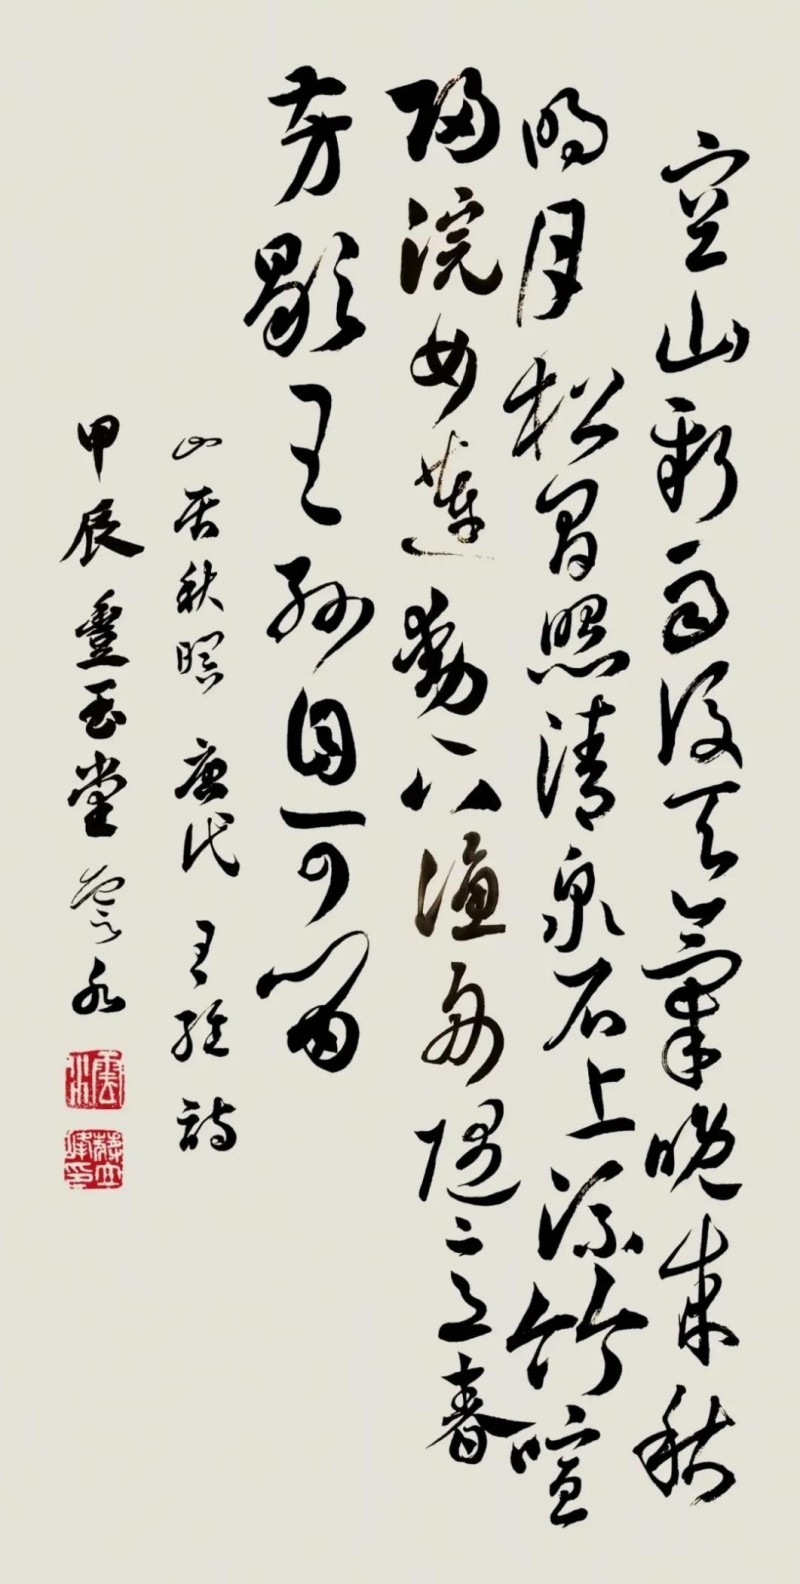 空山新雨後天氣晚来秋
明月松間照清泉石上流竹喧
歸浣女蓮動下漁舟隨意春
芳歇王孫自可留
山居秋暝 唐代 王維 詩
甲辰 豐玉堂 水